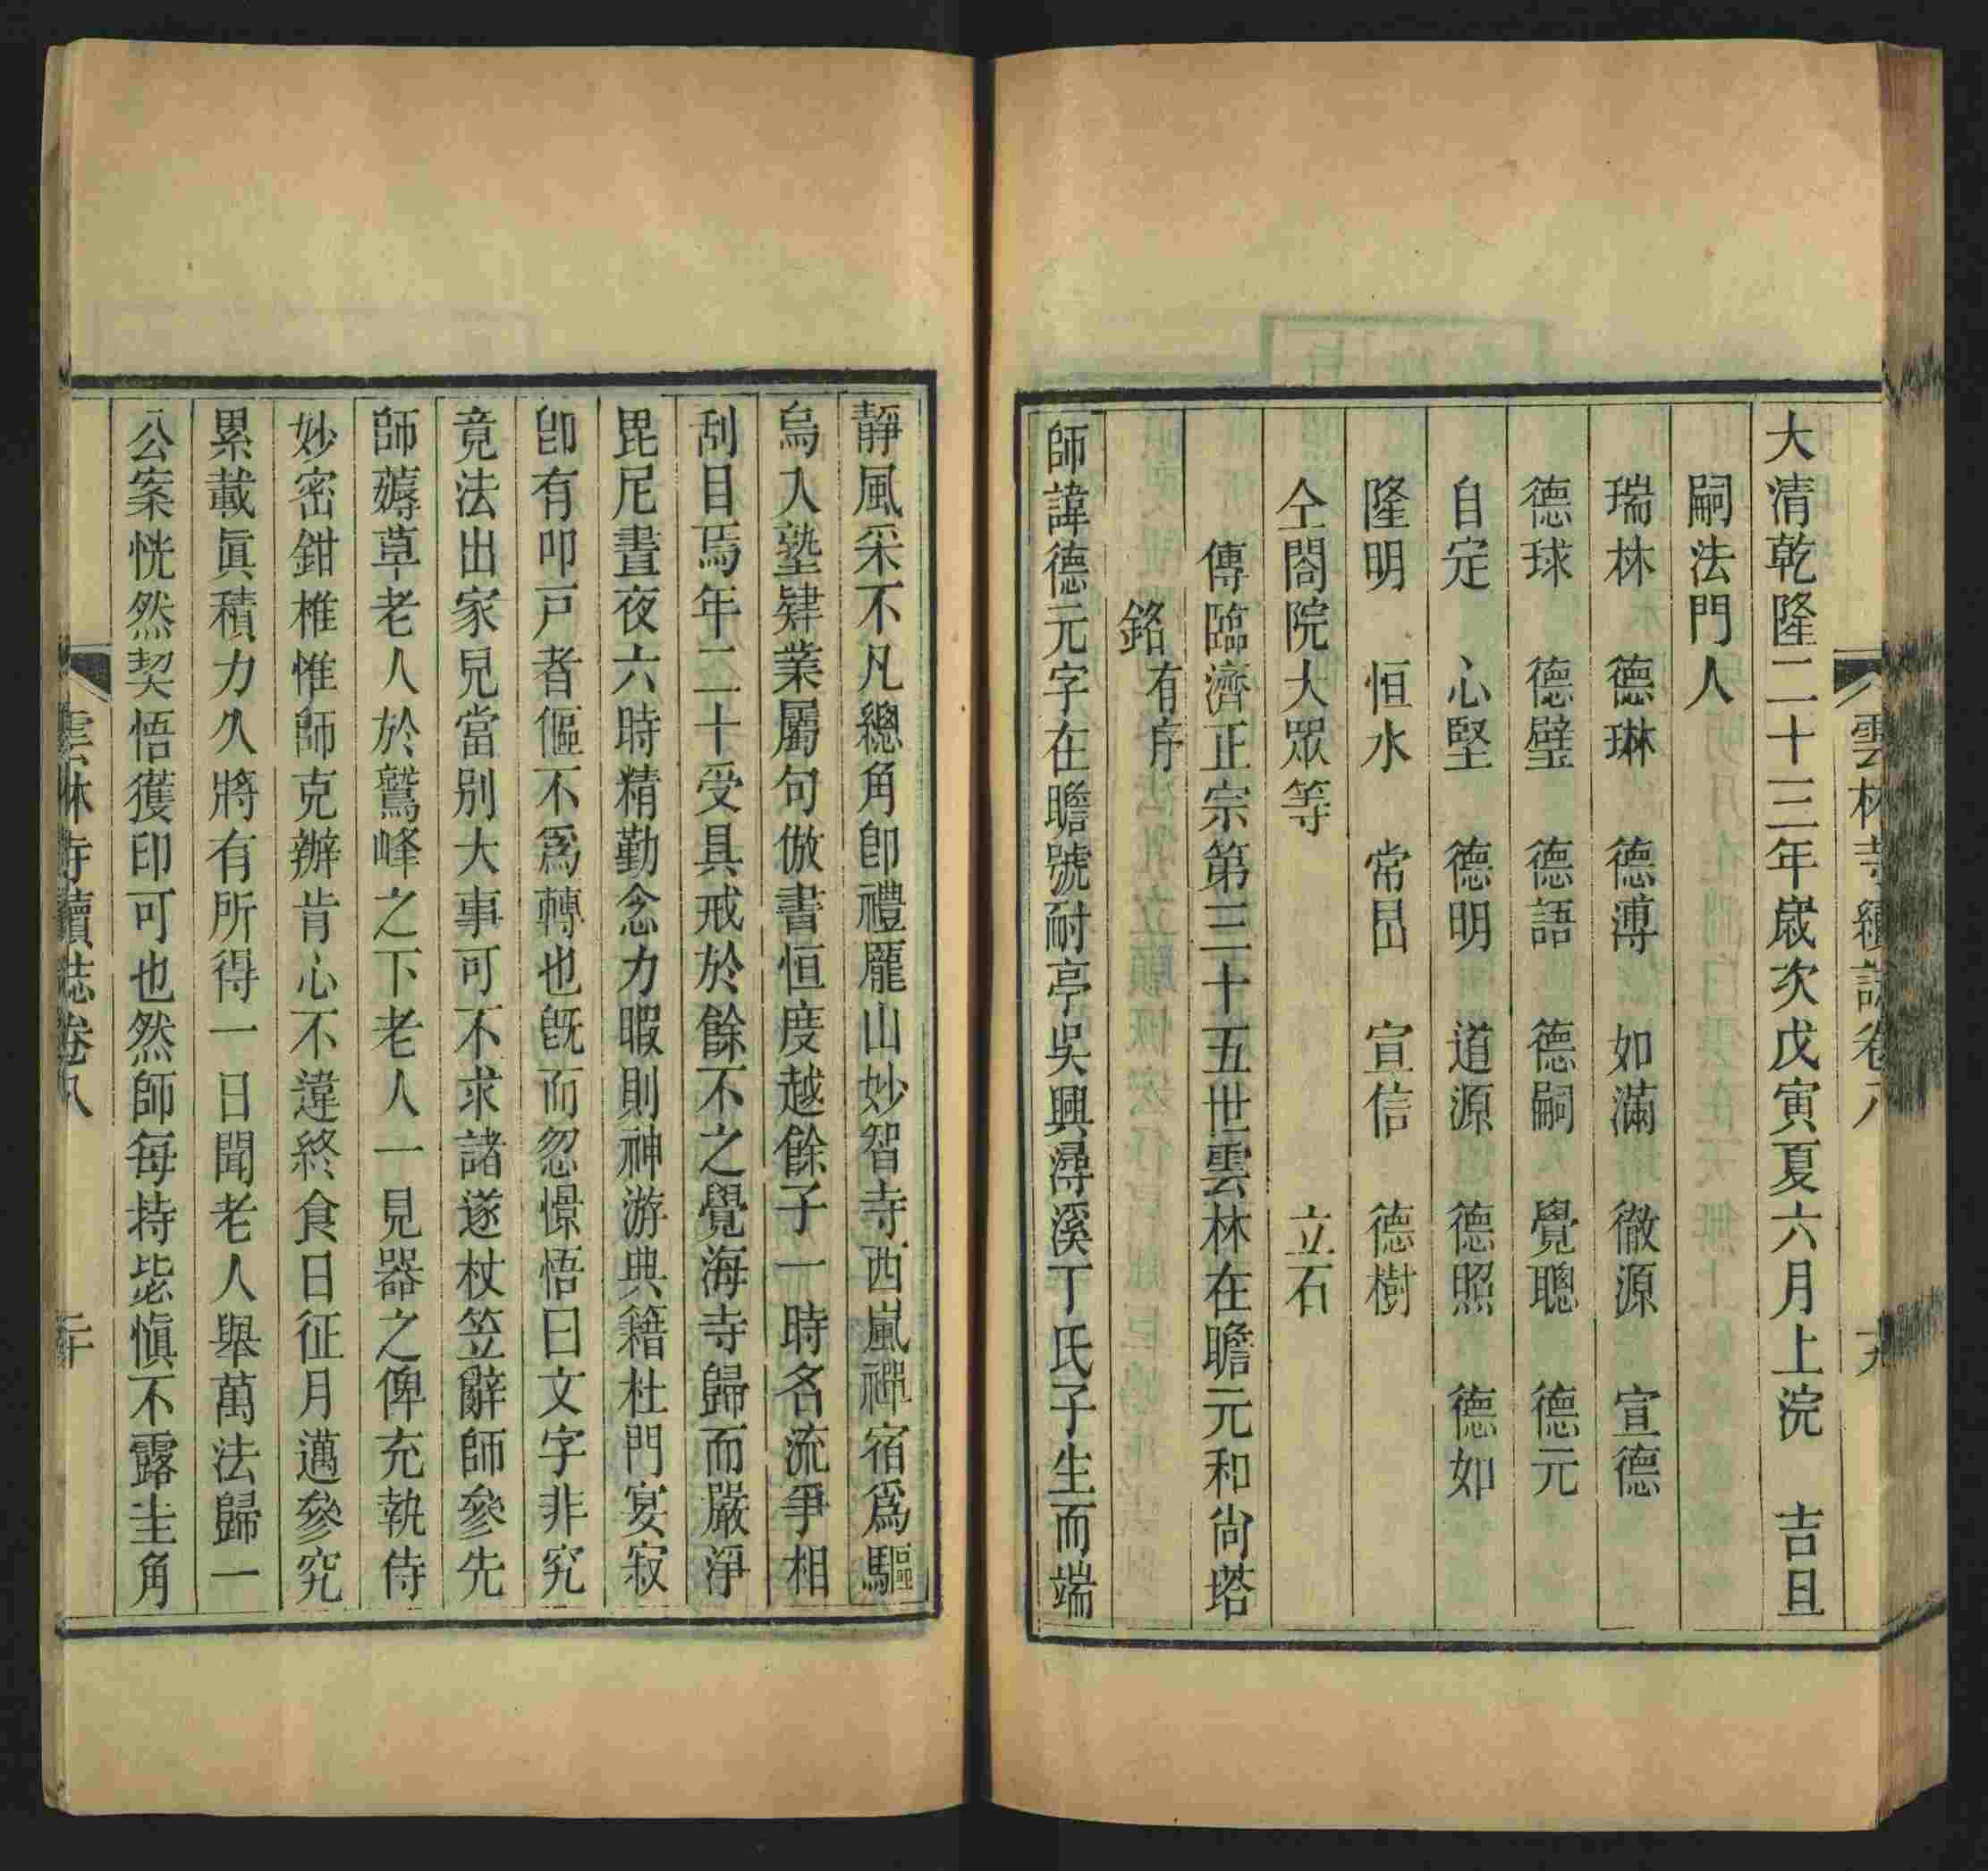 雲林寺續誌卷八 十九
大清乾隆二十三年歲次戊寅夏六月上浣 吉旦
嗣法門人
瑞林 德琳 德溥 如滿 徹源 宣德
德球 德璧 德語 德嗣 覺聰 德元
自定 心堅 德明 道源 德照 德如
隆明 恒水 常昷 宣信 德樹
仝閤院大眾等 立石
傳臨濟正宗第三十五世雲林在瞻元和尚塔
銘有序
師諱德元字在瞻號耐亭吳興潯溪丁氏子生而端
靜風采不凡總角卽禮龐山妙智寺西嵐禪宿爲驅
烏入塾肄業屬句倣書恒度越餘子一時名流爭相
刮目焉年二十受具戒於餘不之覺海寺歸而嚴淨
毘尼晝夜六時精勤念力暇則神游典籍杜門宴寂
卽有叩戸者傴不爲轉也旣而忽憬悟曰文字非究
竟法出家兒當別大事可不求諸遂杖笠辭師參先
師薅草老人於鷲峰之下老人一見器之俾充執侍
妙密鉗椎惟師克辦肯心不違終食日征月邁參究
累載眞積力久將有所得一日聞老人舉萬法歸一
公案恍然契悟獲印可也然師每持毖愼不露圭角
雲林寺續誌卷八 二十